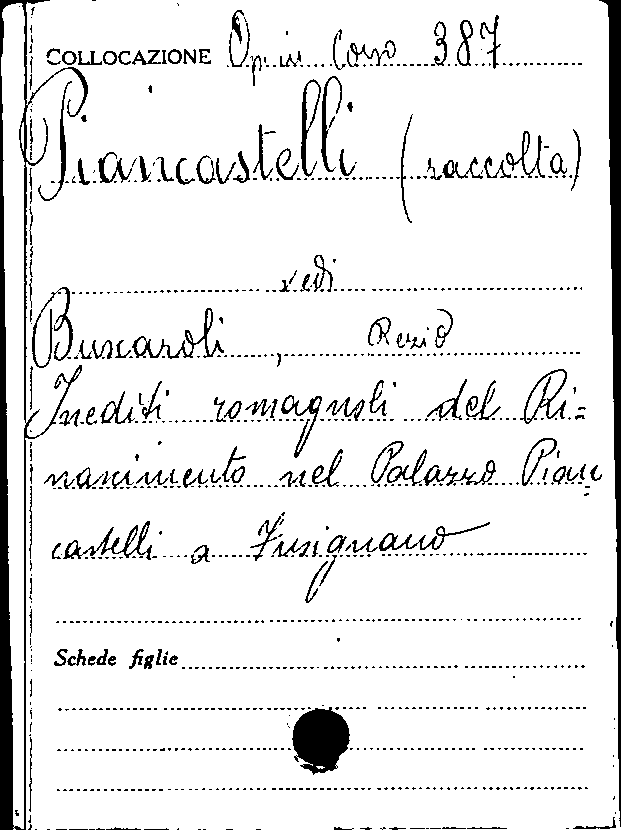 COLLOCAZIONE Op. in Corso 387
Piancastelli (raccolta)
vedi
Buscaroli, Rezio
Inediti romagnoli del Ri=
nascimento nel Palazzo Pian=
castelli a Fusignano
Schede figlie